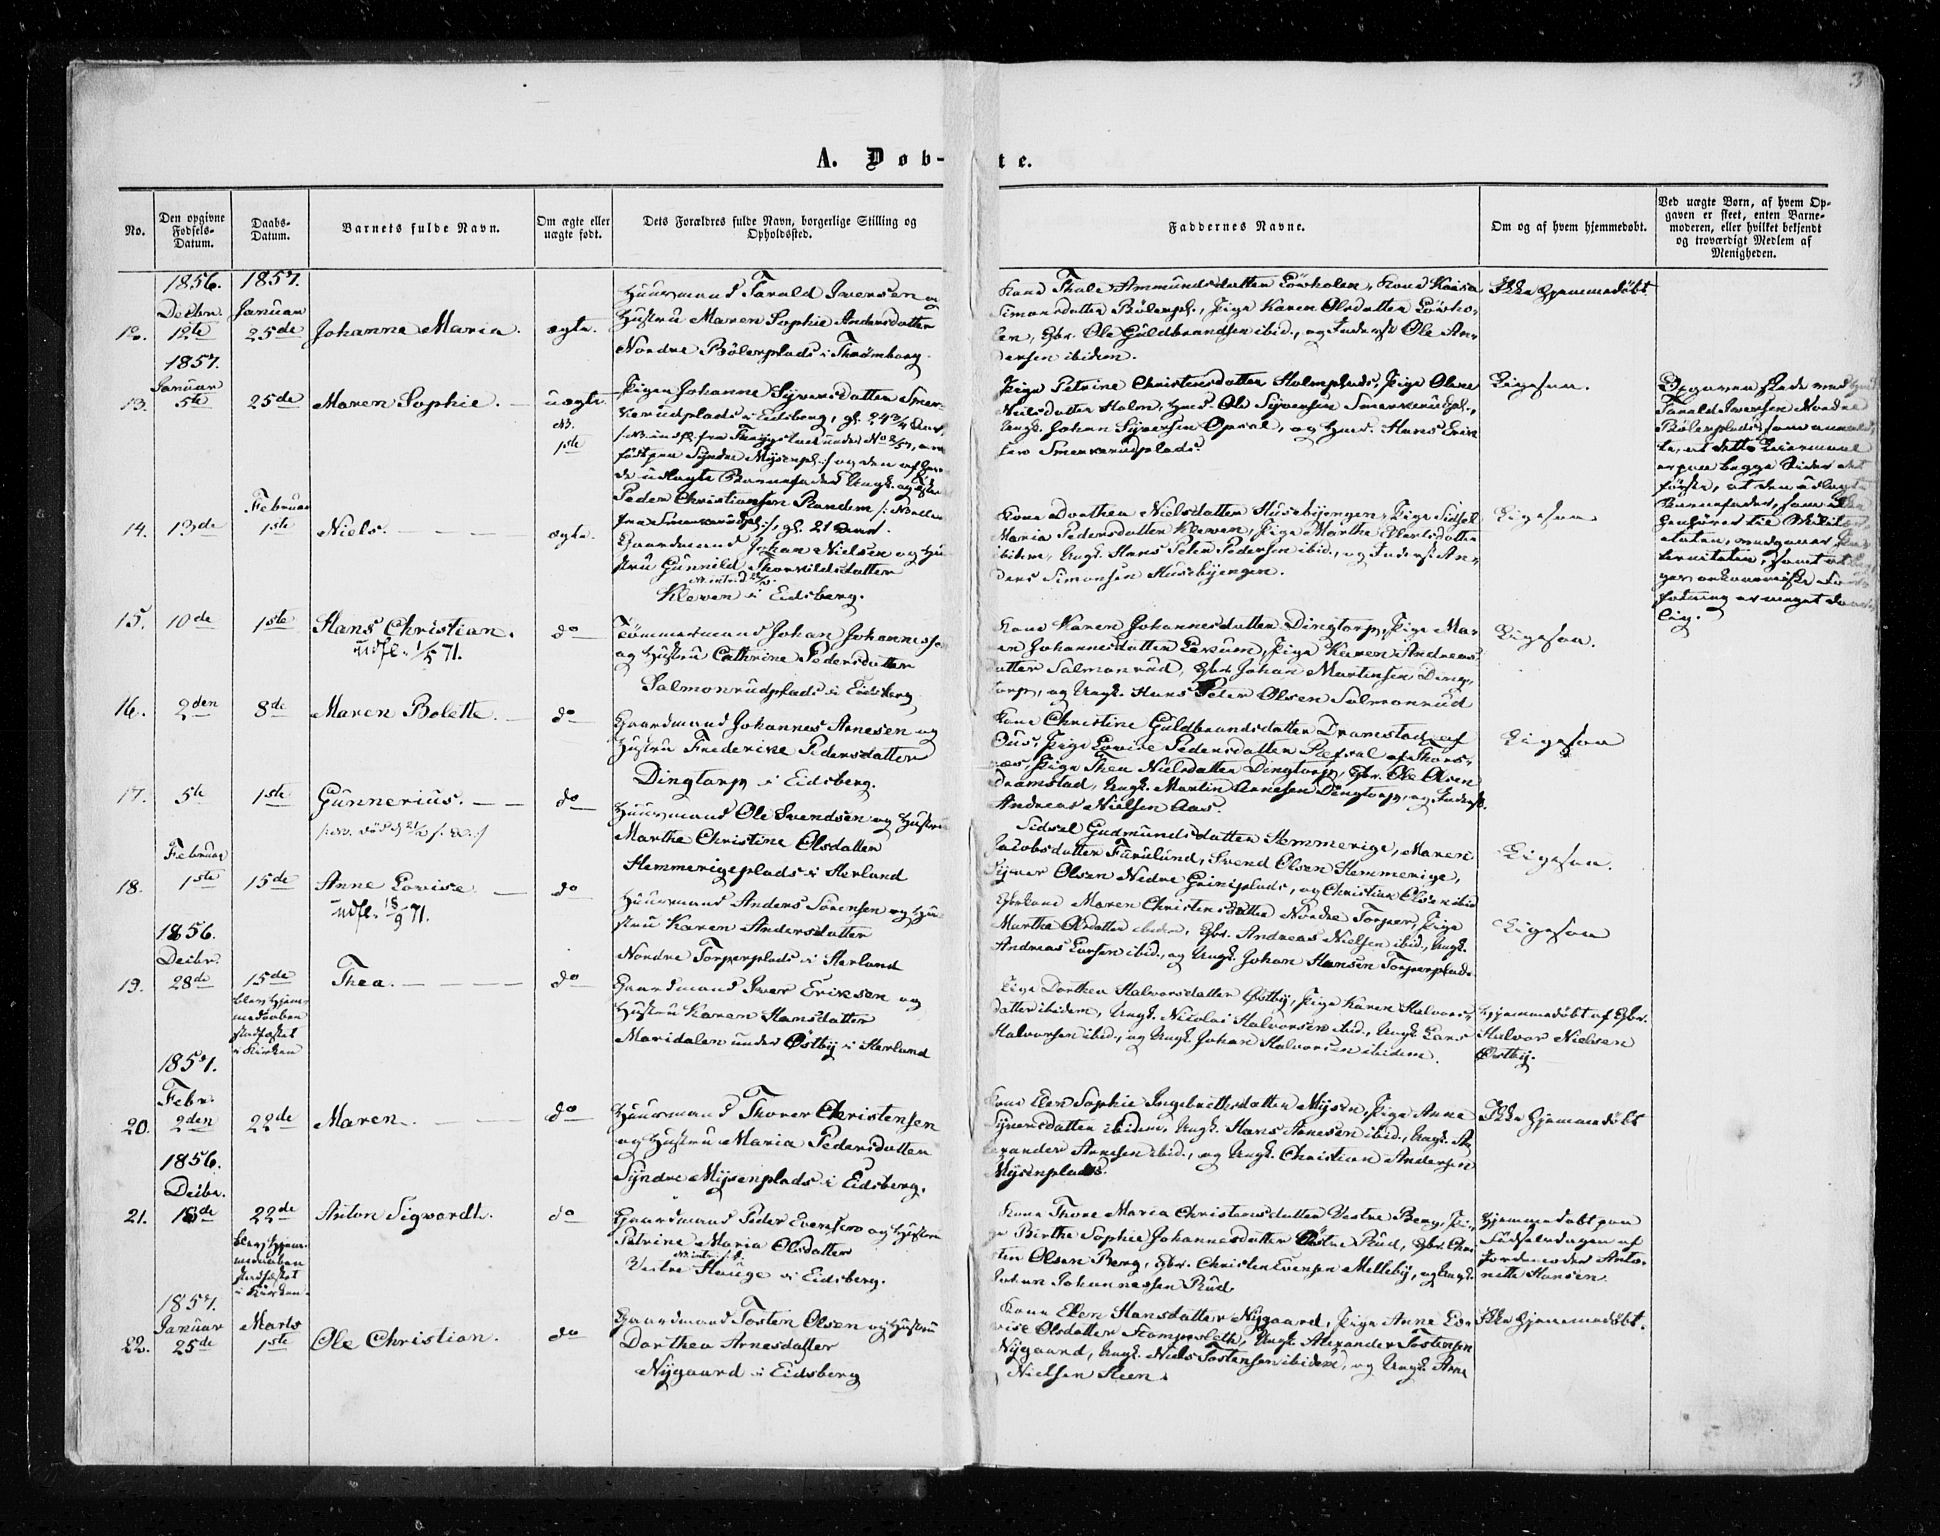 3
A. Døb-te.
No.
Den opgivne Fødsels-Datum.
Daabs-Datum.
Barnets fulde Navn.
Om ægte eller uægte født.
Dets Forældres fulde Navn, borgerlige Stilling og Opholdssted.
Faddernes Navne.
Om og af hvem hjemmedøbt.
Ved uægte Born, af hvem Opgaven er skeet, enten Barnemoderen, eller hvilket bekjendt og troværdigt Medlem af Menigheden.
1856. 1857.
Decbr. Januar
12. 12te 25de Johanne Maria. ægte.
Huusmand Tarald Iversen og
Hustru Maren Sophie Andersdatter
Nordre Bölerplads i Thrømborg.
Kone Thale Ammundsdatter Lövholen, Kone Kaisa
Simonsdatter Bölerpl., Pige Karen Olsdatter Lövho-
len, Gbr. Ole Guldbrandsen ibid., og Inderst Ole An-
dersen ibidem.
Ikke hjemmedøbt.
1857.
Januar
13. 5te 25de Maren Sophie. uægte.
1ste
Pigen Johanne Syversdatter Smer-
kerudplads i Eidsberg, gl. 24 3/4 Aar,
Søndre Mysenpl.
Peder Christiansen Randem
fra Smerkerudpl. gl. 21 Aar.
Pige Petrine Christensdatter Holmplads, Pige Olene
Neilsdatter Holm, Hmd. Ole Syversen Smerkerudpl.,
Ungk. Johan Syversen Opsal, og Hmd. Hans Erik-
sen Smerkerudplads.
Ligesaa.
Opgaven skede ved
Tarald Iversen Nordre
Bölerplads, som
te, at dette Leiermaal
er paa begge Sider det
første, at den udlagte
Barnefader, som ikke
henhører til Militær-
etaten, vedgaaer Pa-
terniteten, samt at
Forfatning er meget daar-
lig.
Februar
14. 13de 1ste Niels. ægte.
Gaardmand Johan Nielsen og Hu-
stru Gunnild Thorkildsdatter
Kleven i Eidsberg.
Kone Dorthea Nielsdatter Husebyengen, Pige Sidsel
Maria Pedersdatter Kleven, Pige Marthe Ellertsdatter
ibidem, Ungk. Hans Peter Pedersen ibid., og Inderst An-
ders Simonsen Husebyengen.
Ligesaa
15. 10de 1ste Hans Christian. do
udfl. 1/5 71.
Tömmermand Johan Johannessen
og Hustru Cathrine Pedersdatter
Salmonrudplads i Eidsberg
Kone Karen Johannesdatter Dingtorp, Pige Ma-
ren Johannesdatter Lekum, Pige Karen Andreas-
datter Salmonrud, Gbr. Johan Martinsen Ding-
torp, og Ungk. Hans Peter Olsen Salmonrud
Ligesaa.
16. 2den 8de Maren Bolette. do
Gaardmand Johannes Arnesen og
Hustru Frederike Pedersdatter
Dingtorp i Eidsberg.
Kone Christine Guldbrandsdatter Dramstad af
Ous, Pige Lovise Pedersdatter
Pige Thea Nielsdatter Dingtorp, Gbr. Ole Olsen
Dramstad, Ungk. Martin Arnesen Dingtorp, og Inderst
Andreas Nielsen Aas.
Ligesaa
17. 5te 1ste Gunnerius. do
Huusmand Ole Svendsen og Hustru
Marthe Christine Olsdatter
Hemmerigeplads i Herland
Sidsel Gudmundsdatter Hemmerige, Maren
Jacobsdatter Furulund, Svend Olsen Hemmerige,
Syver Olsen Nedre Grinisplads, og Christian Olsen ibid
Ligesaa.
Februar
18. 1ste 15de Anne Lovise do
udfl. 18/9 71.
Huusmand Anders Sørensen og Hu-
stru Karen Andersdatter
Nordre Torperplads i Herland
Gbrkone Maren Christensdatter Nordre Torper, Pige
Marthe Olsdatter ibidem, Gbr. Andreas Nielsen ibid., Ungk.
Andreas Larsen ibid., og Ungk. Johan Hansen Torperplads.
Ligesaa
1856.
Decbr.
19. 28de 15de Thea. do
blev hjem-
medaaben
stadfæstet
i Kirken
Gaardmand Iver Eriksen og
Hustru Karen Hansdatter
Maridalen under Østby i Herland
Pige Dorthea Halvorsdatter Østby, Pige Karen Halvors-
datter ibidem, Ungk. Nicolai Halvorsen ibid., Ungk. Lars
Halvorsen ibid., og Ungk. Johan Halvorsen ibidem.
Hjemmedøbt af Gbr.
Halvor Nielsen
Østby.
1857.
Febr.
20. 2den 22de Maren. do
Huusmand Thorer Christensen
og Hustru Maria Pedersdatter
Søndre Mysenplads i Eidsberg.
Kone Elen Sophie Ingebrettsdatter Mysen, Pige Anne
Syversdatter ibidem, Ungk. Hans Arnesen ibid., Ungk. Al-
exander Arnesen ibid., og Ungk. Christian Andersen
Mysenplads.
Ikke hjemmedøbt
1856.
Decbr.
21. 18de 22de Anton Sigvardt. do
blev hjem-
medaaben
stadfæstet
i Kirken.
Gaardmand Peder Evensen og Hustru
Petrine Maria Olsdatter
Vestre Hauge i Eidsberg.
Kone Thone Maria Christensdatter Vestre Berg, Pi-
ge Birthe Sophie Johannesdatter Østre Rud, Gbr. Chri-
sten Olsen Berg, Gbr. Christen Evensen Melleby, og Ungk.
Johan Johannessen Rud
Hjemmedøbt paa
Födselsdagen af
Jordemoder Anto-
nette Hansen.
1857.
Januar Marts
22. 25de 1ste Ole Christian. do
Gaardmand Tosten Olsen og Hustru
Dorthea Arnesdatter
Nygaard i Eidsberg
Kone Elen Hansdatter Nygaard, Pige Anne Lo-
vise Olsdatter Stomperleth, Ungk. Alexander Tostensen
Nygaard, Ungk. Niels Tostensen ibidem, og Ungk. Arne
Nielsen Steen.
Ikke hjemmedøbt.